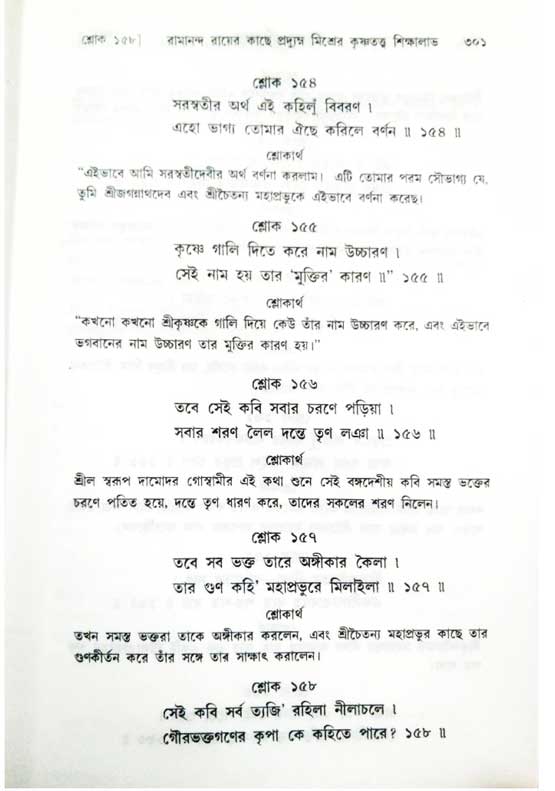 শ্লোক ১৫৮] রামানন্দ রায়ের কাছে প্রদ্যুম্ন মিশ্রের কৃষ্ণতত্ত্ব শিক্ষালাভ ৩০১
শ্লোক ১৫৪
সরস্বতীর অর্থ এই কহিলুঁ বিবরণ ।
এহো ভাগ্য তোমার ঐছে করিলে বর্ণন ॥ ১৫৪ ॥
শ্লোকার্থ
“এইভাবে আমি সরস্বতীদেবীর অর্থ বর্ণনা করলাম। এটি তোমার পরম সৌভাগ্য যে,
তুমি শ্রীজগন্নাথদেব এবং শ্রীচৈতন্য মহাপ্রভুকে এইভাবে বর্ণনা করেছ।
শ্লোক ১৫৫
কৃষ্ণে গালি দিতে করে নাম উচ্চারণ ।
সেই নাম হয় তার ‘মুক্তির’ কারণ ॥” ১৫৫ ॥
শ্লোকার্থ
“কখনো কখনো শ্রীকৃষ্ণকে গালি দিয়ে কেউ তাঁর নাম উচ্চারণ করে, এবং এইভাবে
ভগবানের নাম উচ্চারণ তার মুক্তির কারণ হয়।”
শ্লোক ১৫৬
তবে সেই কবি সবার চরণে পড়িয়া ।
সবার শরণ লৈল দন্তে তৃণ লঞা ॥ ১৫৬ ॥
শ্লোকার্থ
শ্রীল স্বরূপ দামোদর গোস্বামীর এই কথা শুনে সেই বঙ্গদেশীয় কবি সমস্ত ভক্তের
চরণে পতিত হয়ে, দন্তে তৃণ ধারণ করে, তাদের সকলের শরণ নিলেন।
শ্লোক ১৫৭
তবে সব ভক্ত তারে অঙ্গীকার কৈলা ।
তার গুণ কহি’ মহাপ্রভুরে মিলাইলা ॥ ১৫৭ ॥
শ্লোকার্থ
তখন সমস্ত ভক্তরা তাকে অঙ্গীকার করলেন, এবং শ্রীচৈতন্য মহাপ্রভুর কাছে তার
গুণকীর্তন করে তাঁর সঙ্গে তার সাক্ষাৎ করালেন।
শ্লোক ১৫৮
সেই কবি সর্ব ত্যজি’ রহিলা নীলাচলে ।
গৌরভক্তগণের কৃপা কে কহিতে পারে? ১৫৮ ॥